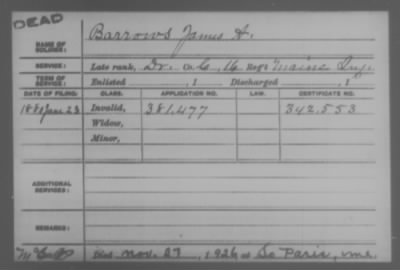 DEAD
NAME OF SOLDIER: Barrows James A.
SERVICE: Late rank, Dr. Co. G, 16 Reg't Maine Inf.
TERM OF SERVICE: Enlisted , 1 Discharged , 1
DATE OF FILING. CLASS. APPLICATION NO. LAW. CERTIFICATE NO.
1880 June 23 Invalid, 381,477 342,553
Widow,
Minor,
ADDITIONAL SERVICES:
REMARKS:
Died Nov. 27, 1926 at So Paris, me.